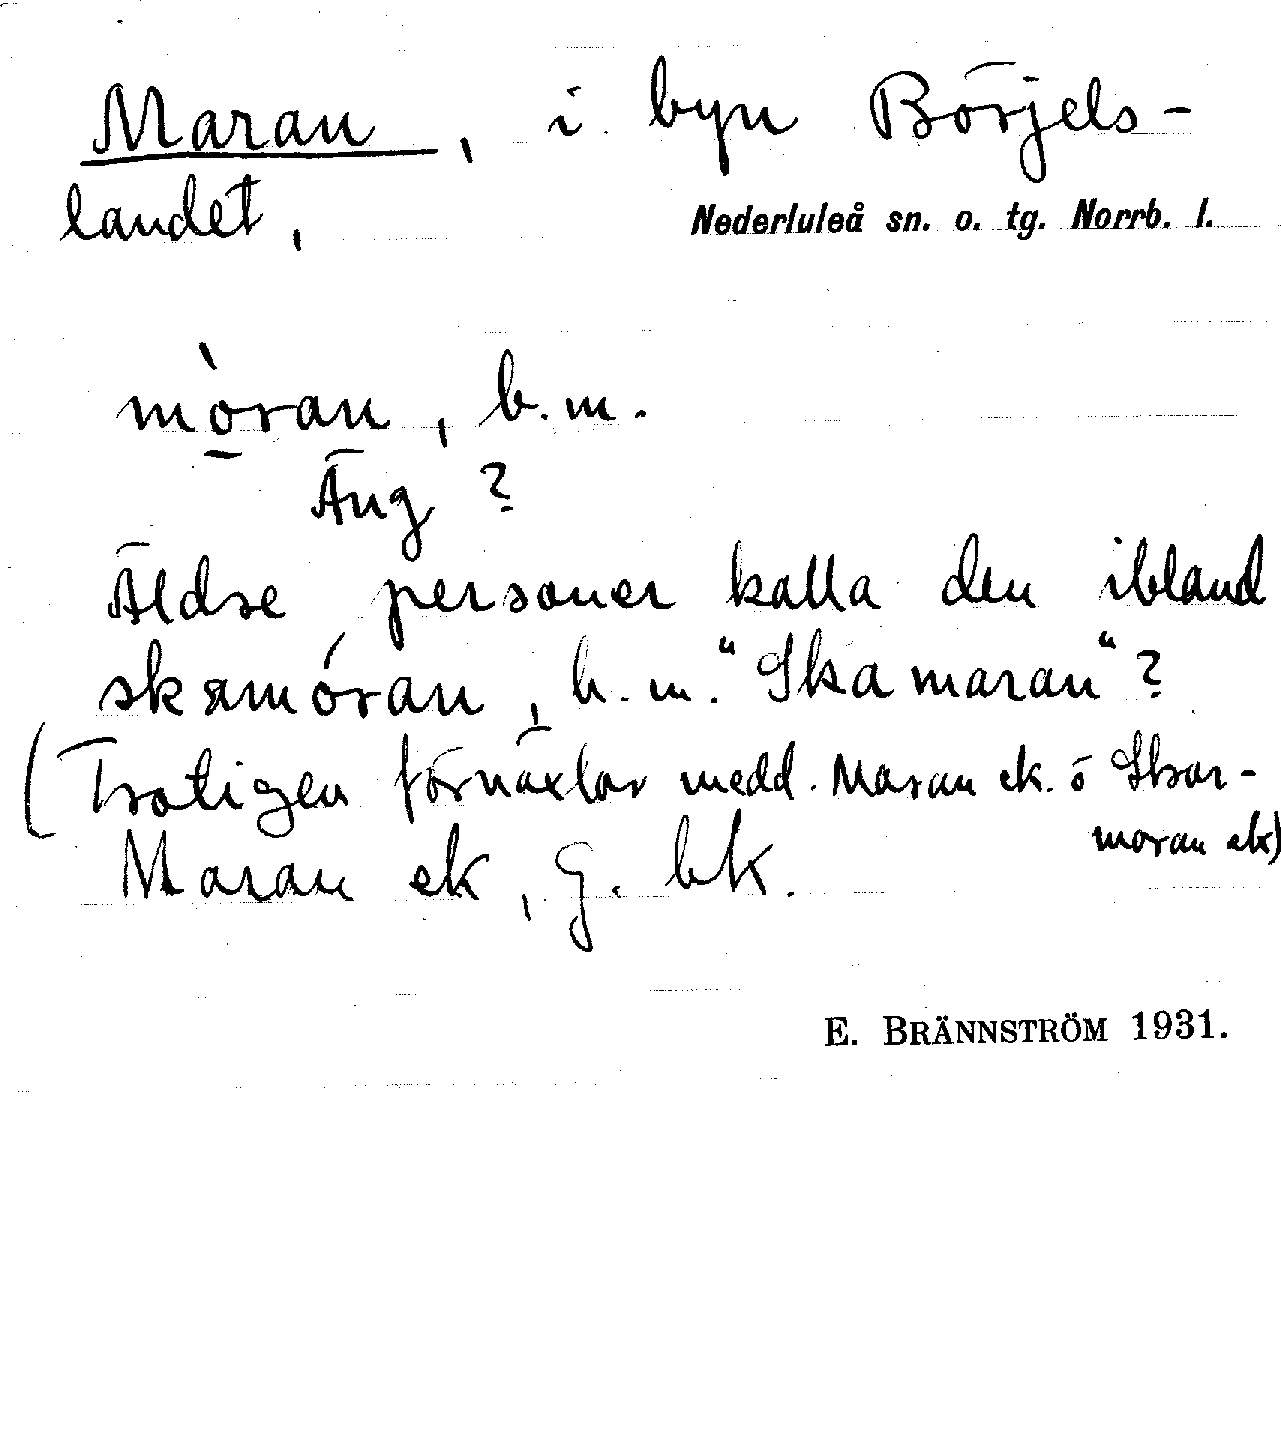 Maran, i byn Börjels-
landet,
Nederluleå sn. o. tg. Norrb. l.
mòran, b. m.
Äng?
Äldre personer kalla den ibland
skamóran, b. m. "Skamaran"?
(Troligen förväxlar medd. Maran ek. o Skar-
moran ek)
Maran ek, G. bk.
E. BRÄNNSTRÖM 1931.